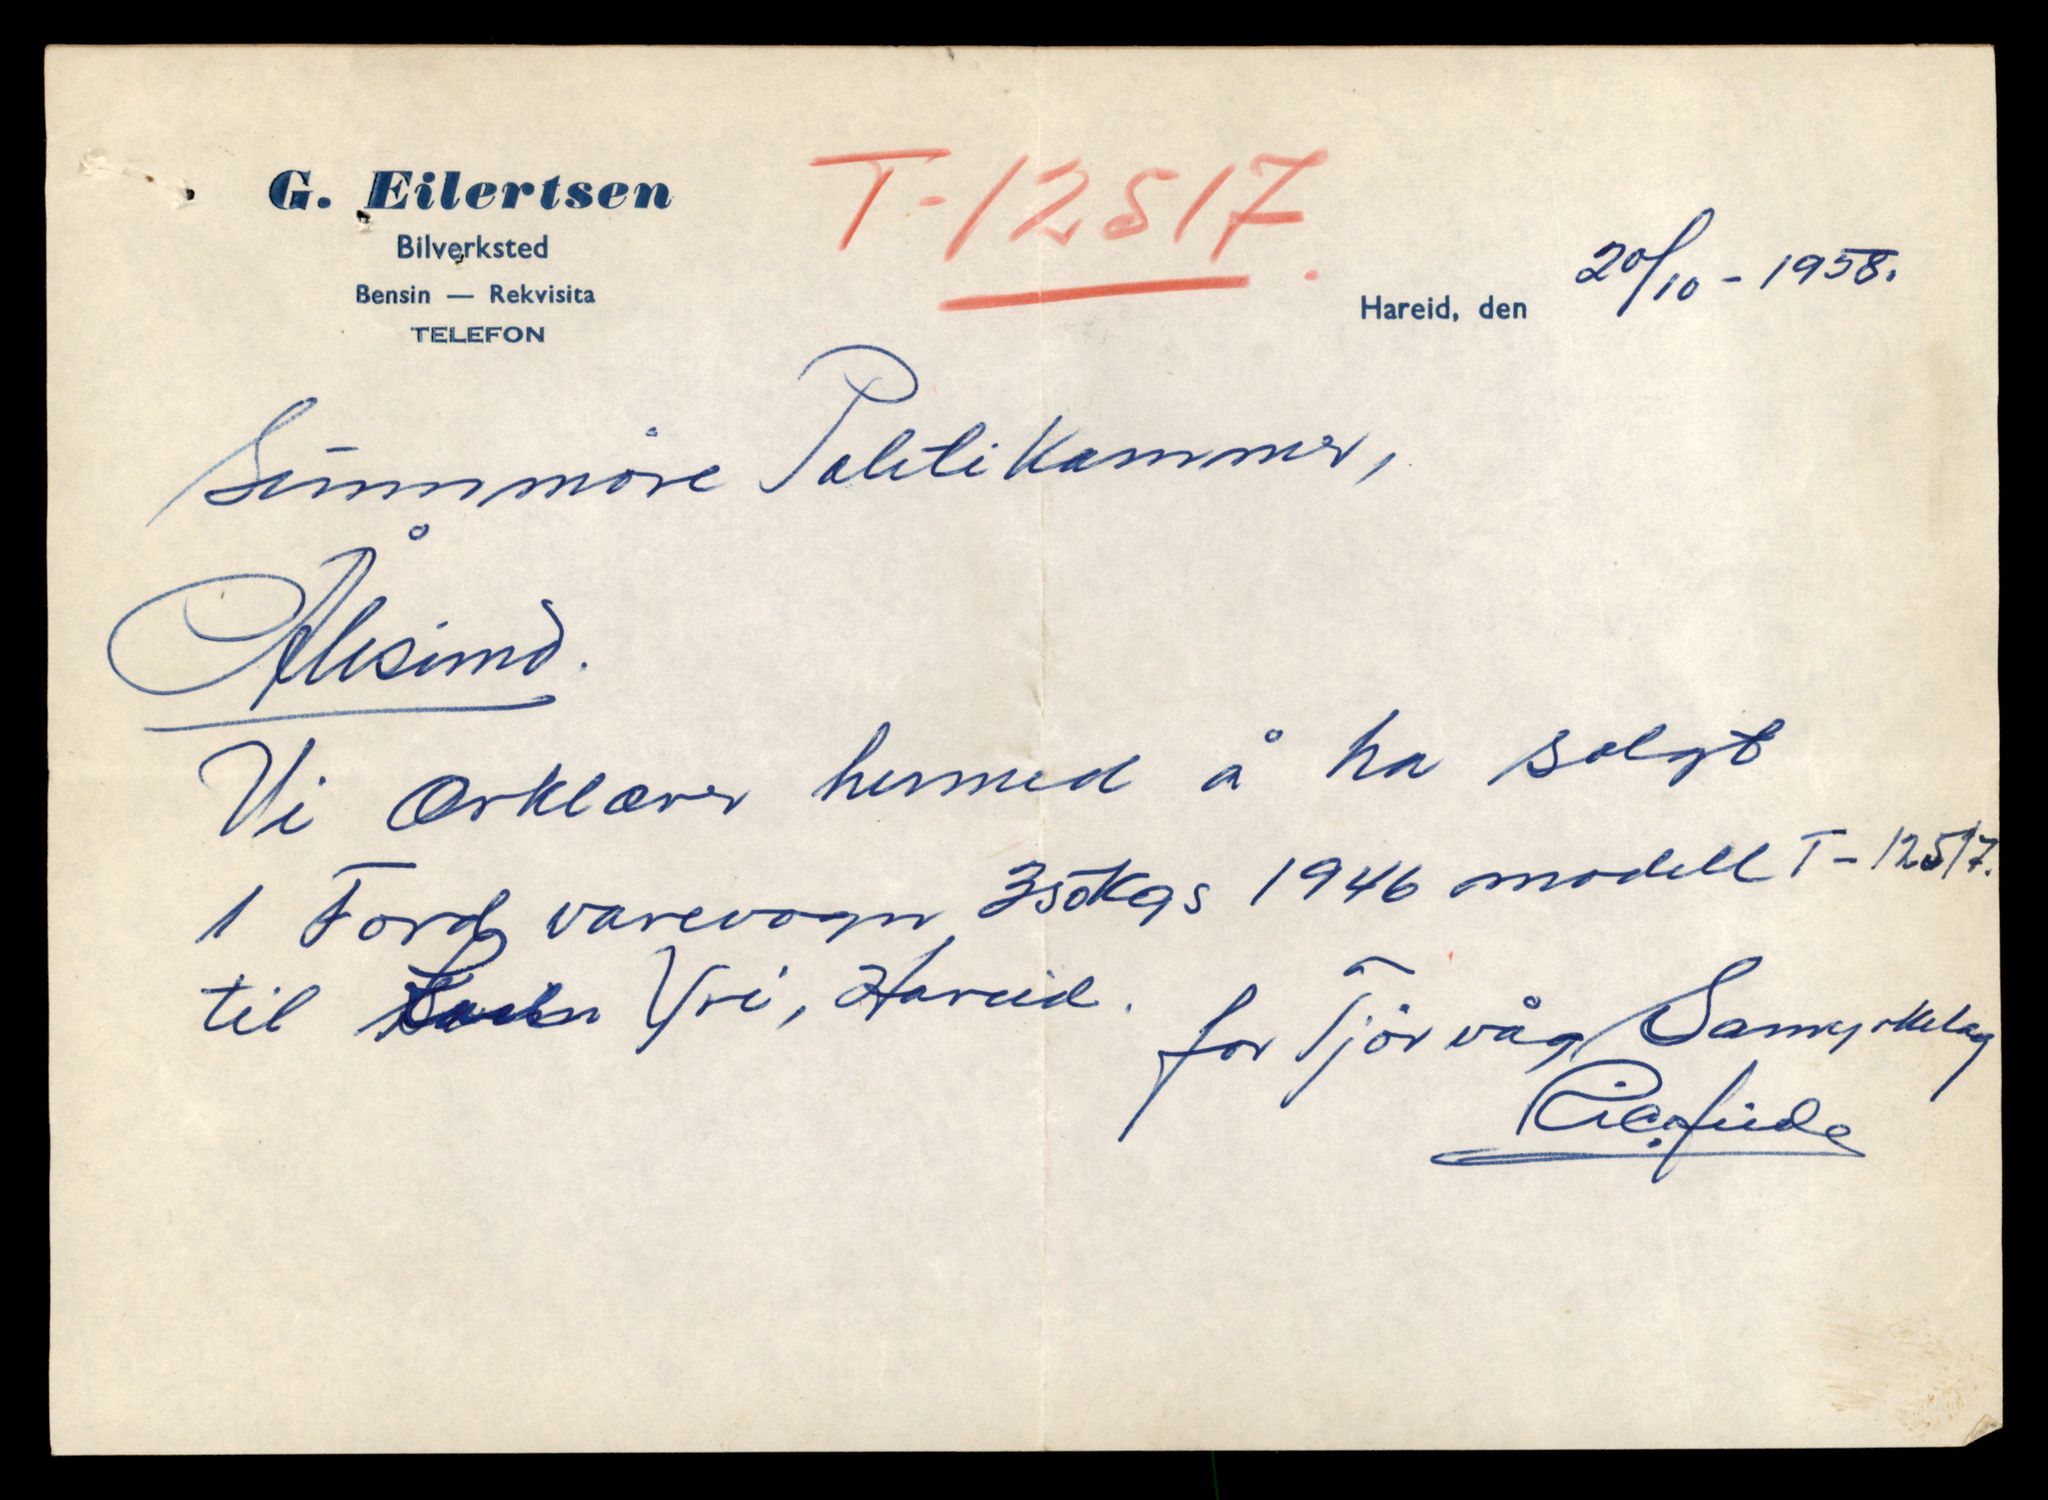 G. Eilertsen
Bilverksted
Bensin — Rekvisita
TELEFON
T-12517.
Hareid, den 20/10 - 1958.
Sunnmöre Politikammer,
Ålesund.
Vi ærklærer hermed å ha solgt
1 Ford varevogn 350kgs 1946 modell T-12517.
til Yri, Hareid.
for Tjörvåg Samyrkelag